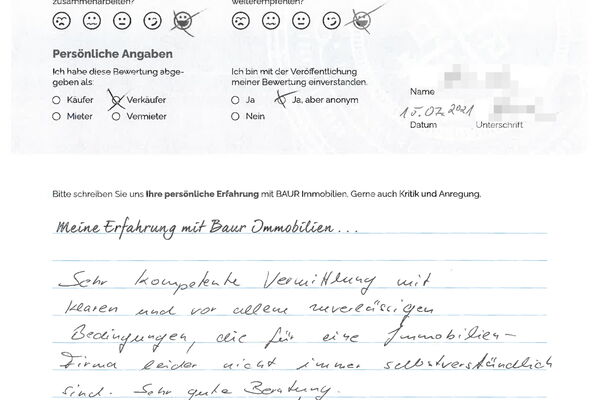 zusammenarbeiten?
weiterempfehlen?
Persönliche Angaben
Ich habe diese Bewertung abge-
geben als:
Käufer Verkäufer
Mieter Vermieter
Ich bin mit der Veröffentlichung
meiner Bewertung einverstanden.
Ja Ja, aber anonym
Nein
Name
15.07.2021
Datum Unterschrift
Bitte schreiben Sie uns Ihre persönliche Erfahrung mit BAUR Immobilien. Gerne auch Kritik und Anregung.
Meine Erfahrung mit Baur Immobilien...
Sehr kompetente Vermittlung mit
klaren und vor allem zuverlässigen
Bedingungen, die für eine Immobilien-
Firma leider nicht immer selbstverständlich
sind. Sehr gute Beratung.